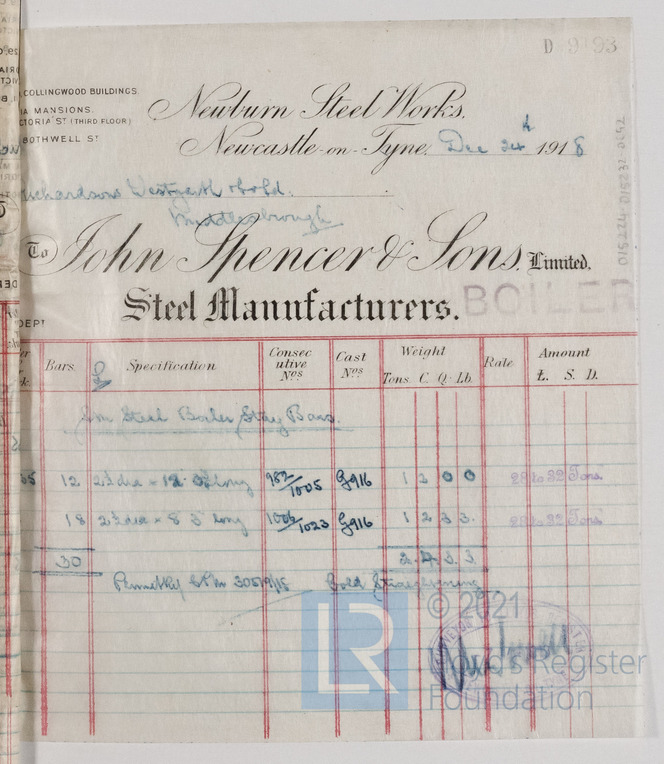 D 9193
COLLINGWOOD BUILDINGS.
A MANSIONS.
TORIA ST (THIRD FLOOR)
BOTHWELL ST
Newburn Steel Works,
Newcastle-on-Tyne, Dec 24th 1918
Richardsons Westgarth & Co Ld.
Middlesbrough
To John Spencer & Sons, Limited,
Steel Manufacturers.
BOILER
DEPT
Bars. Specification Consecutive Nos Cast Nos Weight Rate Amount
Tons. C. Q. Lb. £. S. D.
Sm Steel Boiler Stay Bars.
12 long 982/1005 G916 1 2 0 0 28 to 32 Tons
18 2½ dia × 8 3 long 1006/1023 G916 1 2 3 3. 28 to 32 Tons
30 2. 4. 3. 3
Cold Straightening
LR
© 2021
Lloyd's Register
Foundation